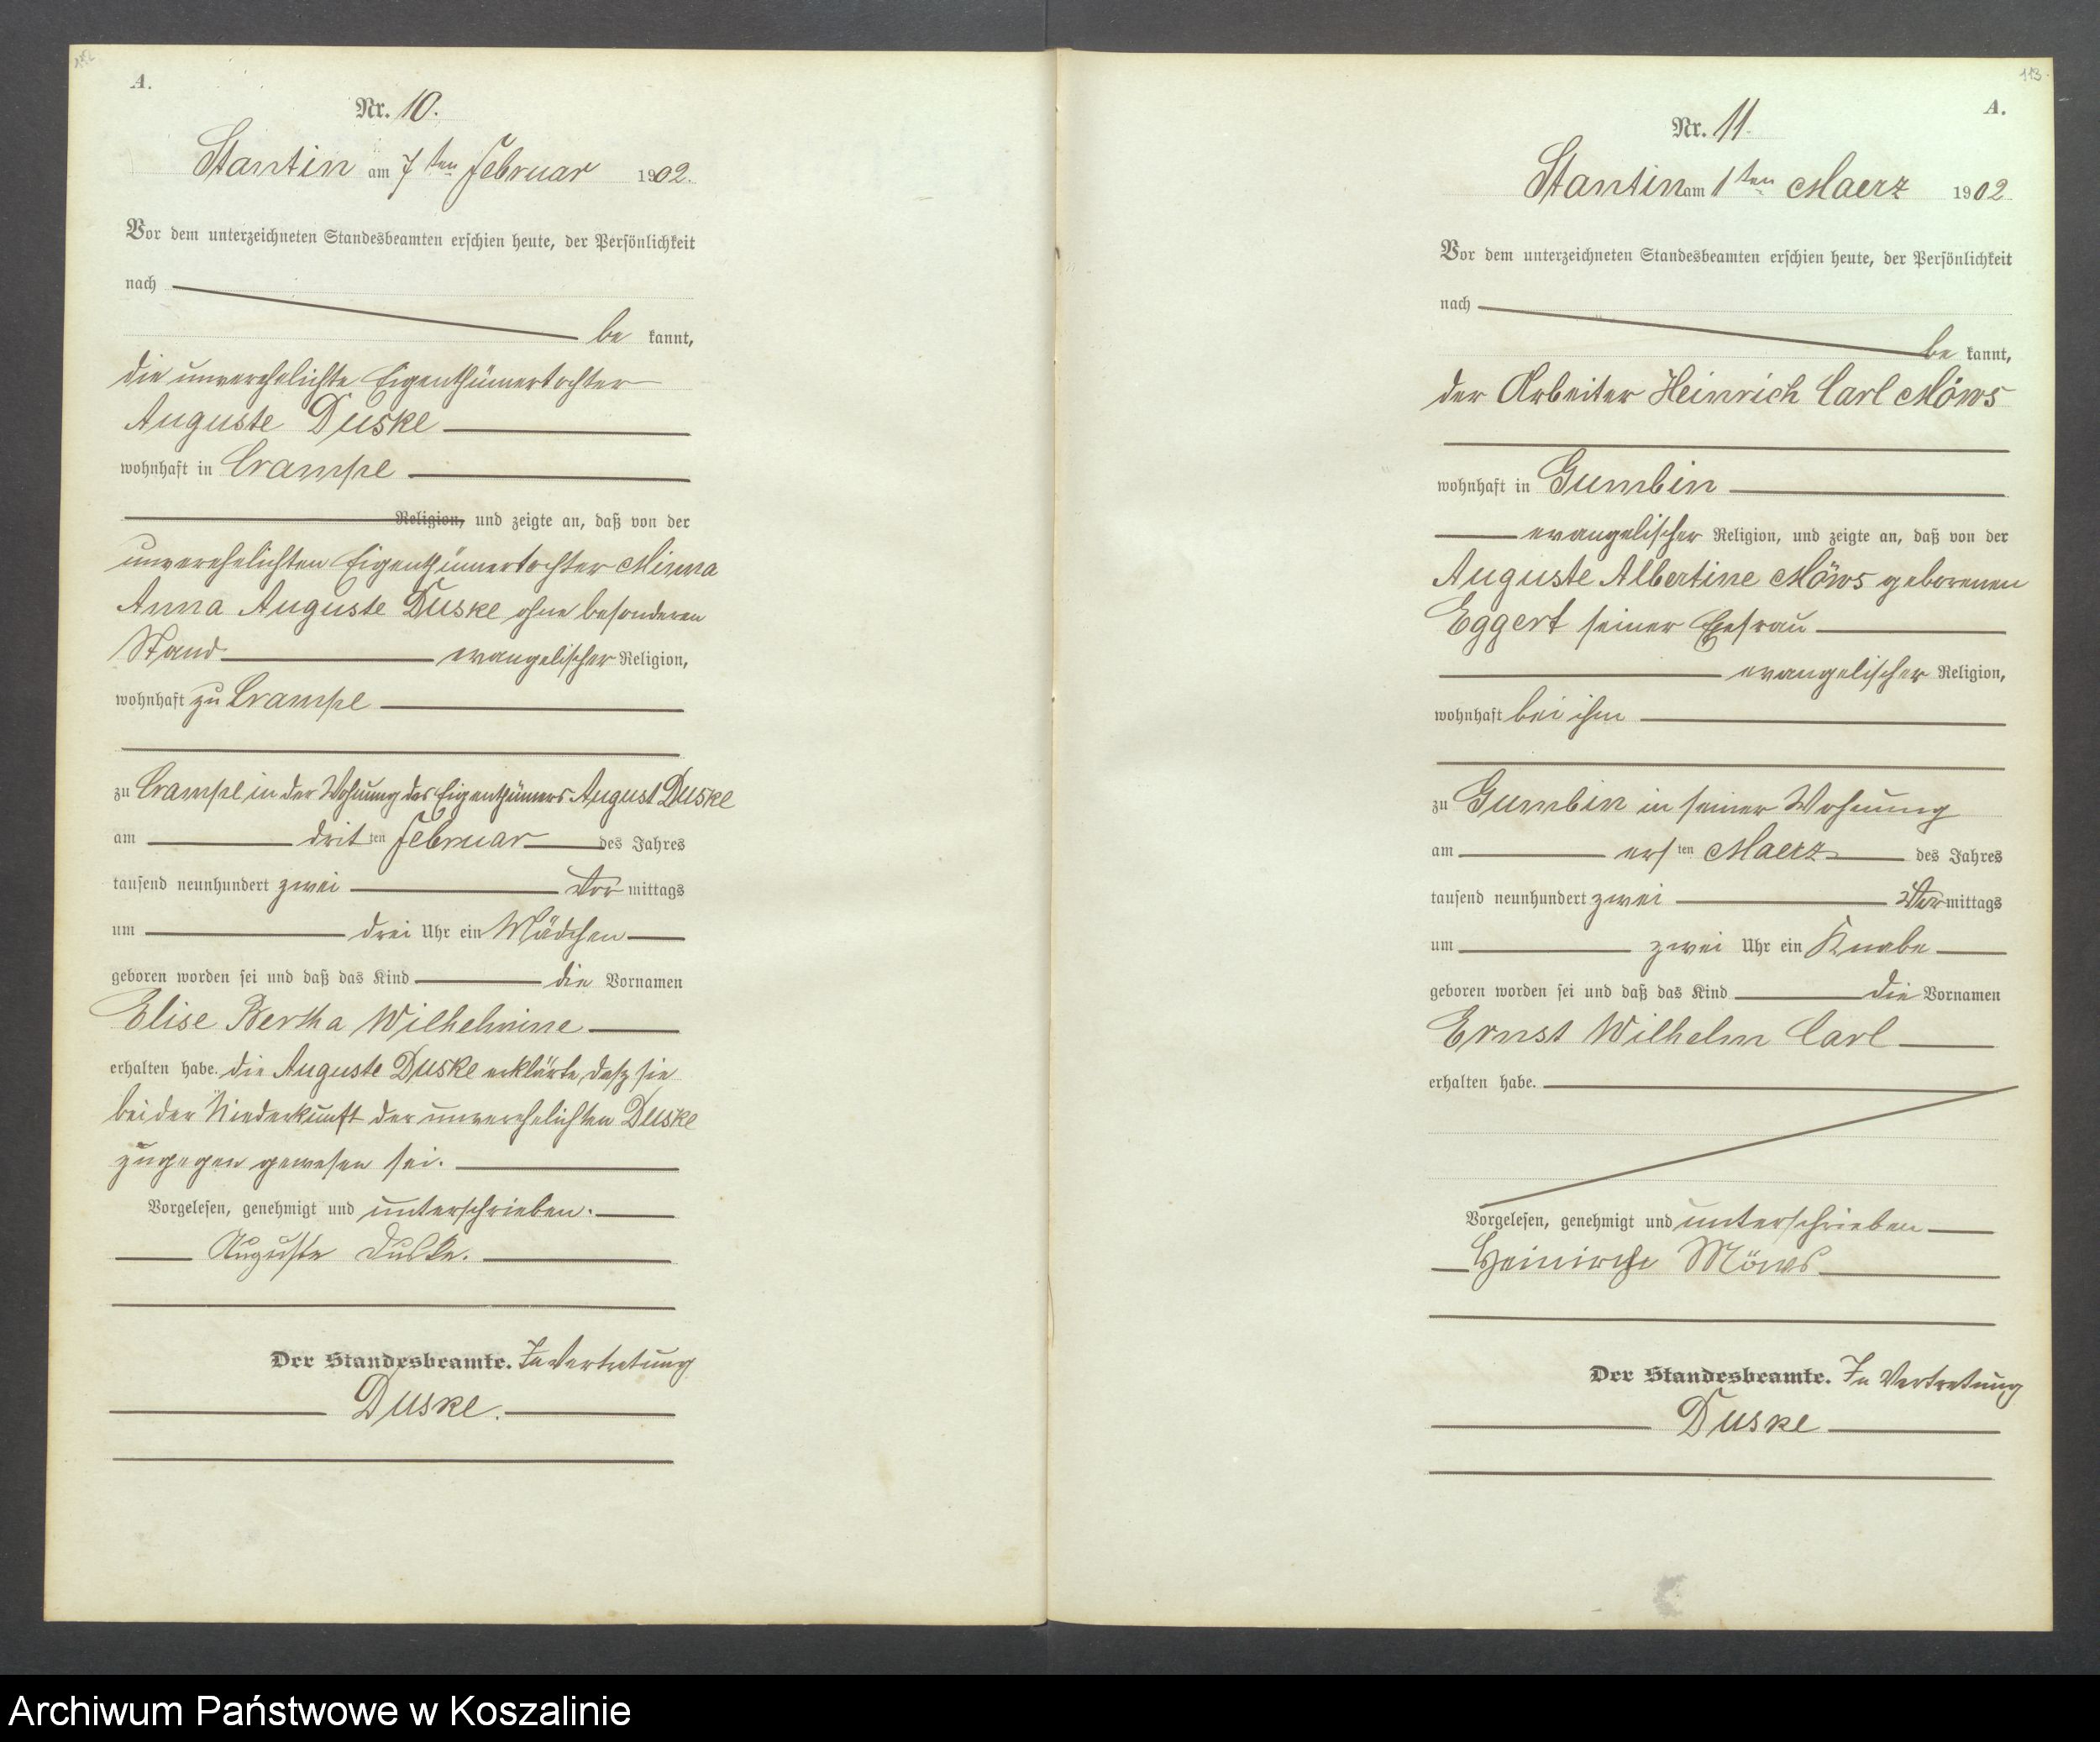 A.
Nr. 10.
Stantin am 7ten Februar 1902.
Vor dem unterzeichneten Standesbeamten erschien heute, der Persönlichkeit
nach
be kannt,
die unverehelichte Eigenthümertochter
Auguste Duske
wohnhaft in Crampe
Religion, und zeigte an, daß von der
unverehelichten Eigenthümertochter Minna
Anna Auguste Duske ohne besonderen
Stand evangelischer Religion,
wohnhaft zu Crampe
zu Crampe in der Wohnung des Eigenthümers August Duske
am dritten Februar des Jahres
tausend neunhundert zwei Vor mittags
um drei Uhr ein Mädchen
geboren worden sei und daß das Kind die Vornamen
Elise Bertha Wilhelmine
erhalten habe. die Auguste Duske erklärte, daß sie
bei der Niederkunft der unverehelichten Duske
zugegen gewesen sei.
Vorgelesen, genehmigt und unterschrieben.
Auguste Duske.
Der Standesbeamte. In Vertretung
Duske.
113
A.
Nr. 11.
Stantin am 1ten Maerz 1902
Vor dem unterzeichneten Standesbeamten erschien heute, der Persönlichkeit
nach
be kannt,
der Arbeiter Heinrich Carl Möws
wohnhaft in Gumbin
evangelischer Religion, und zeigte an, daß von der
Auguste Albertine Möws geborenen
Eggert seiner Ehefrau
evangelischer Religion,
wohnhaft bei ihm
zu Gumbin in seiner Wohnung
am ersten Maerz des Jahres
tausend neunhundert zwei Vormittags
um zwei Uhr ein Knabe
geboren worden sei und daß das Kind die Vornamen
Ernst Wilhelm Carl
erhalten habe.
Vorgelesen, genehmigt und unterschrieben
Heinirch Möws
Der Standesbeamte. In Vertretung
Duske
Archiwum Państwowe w Koszalinie